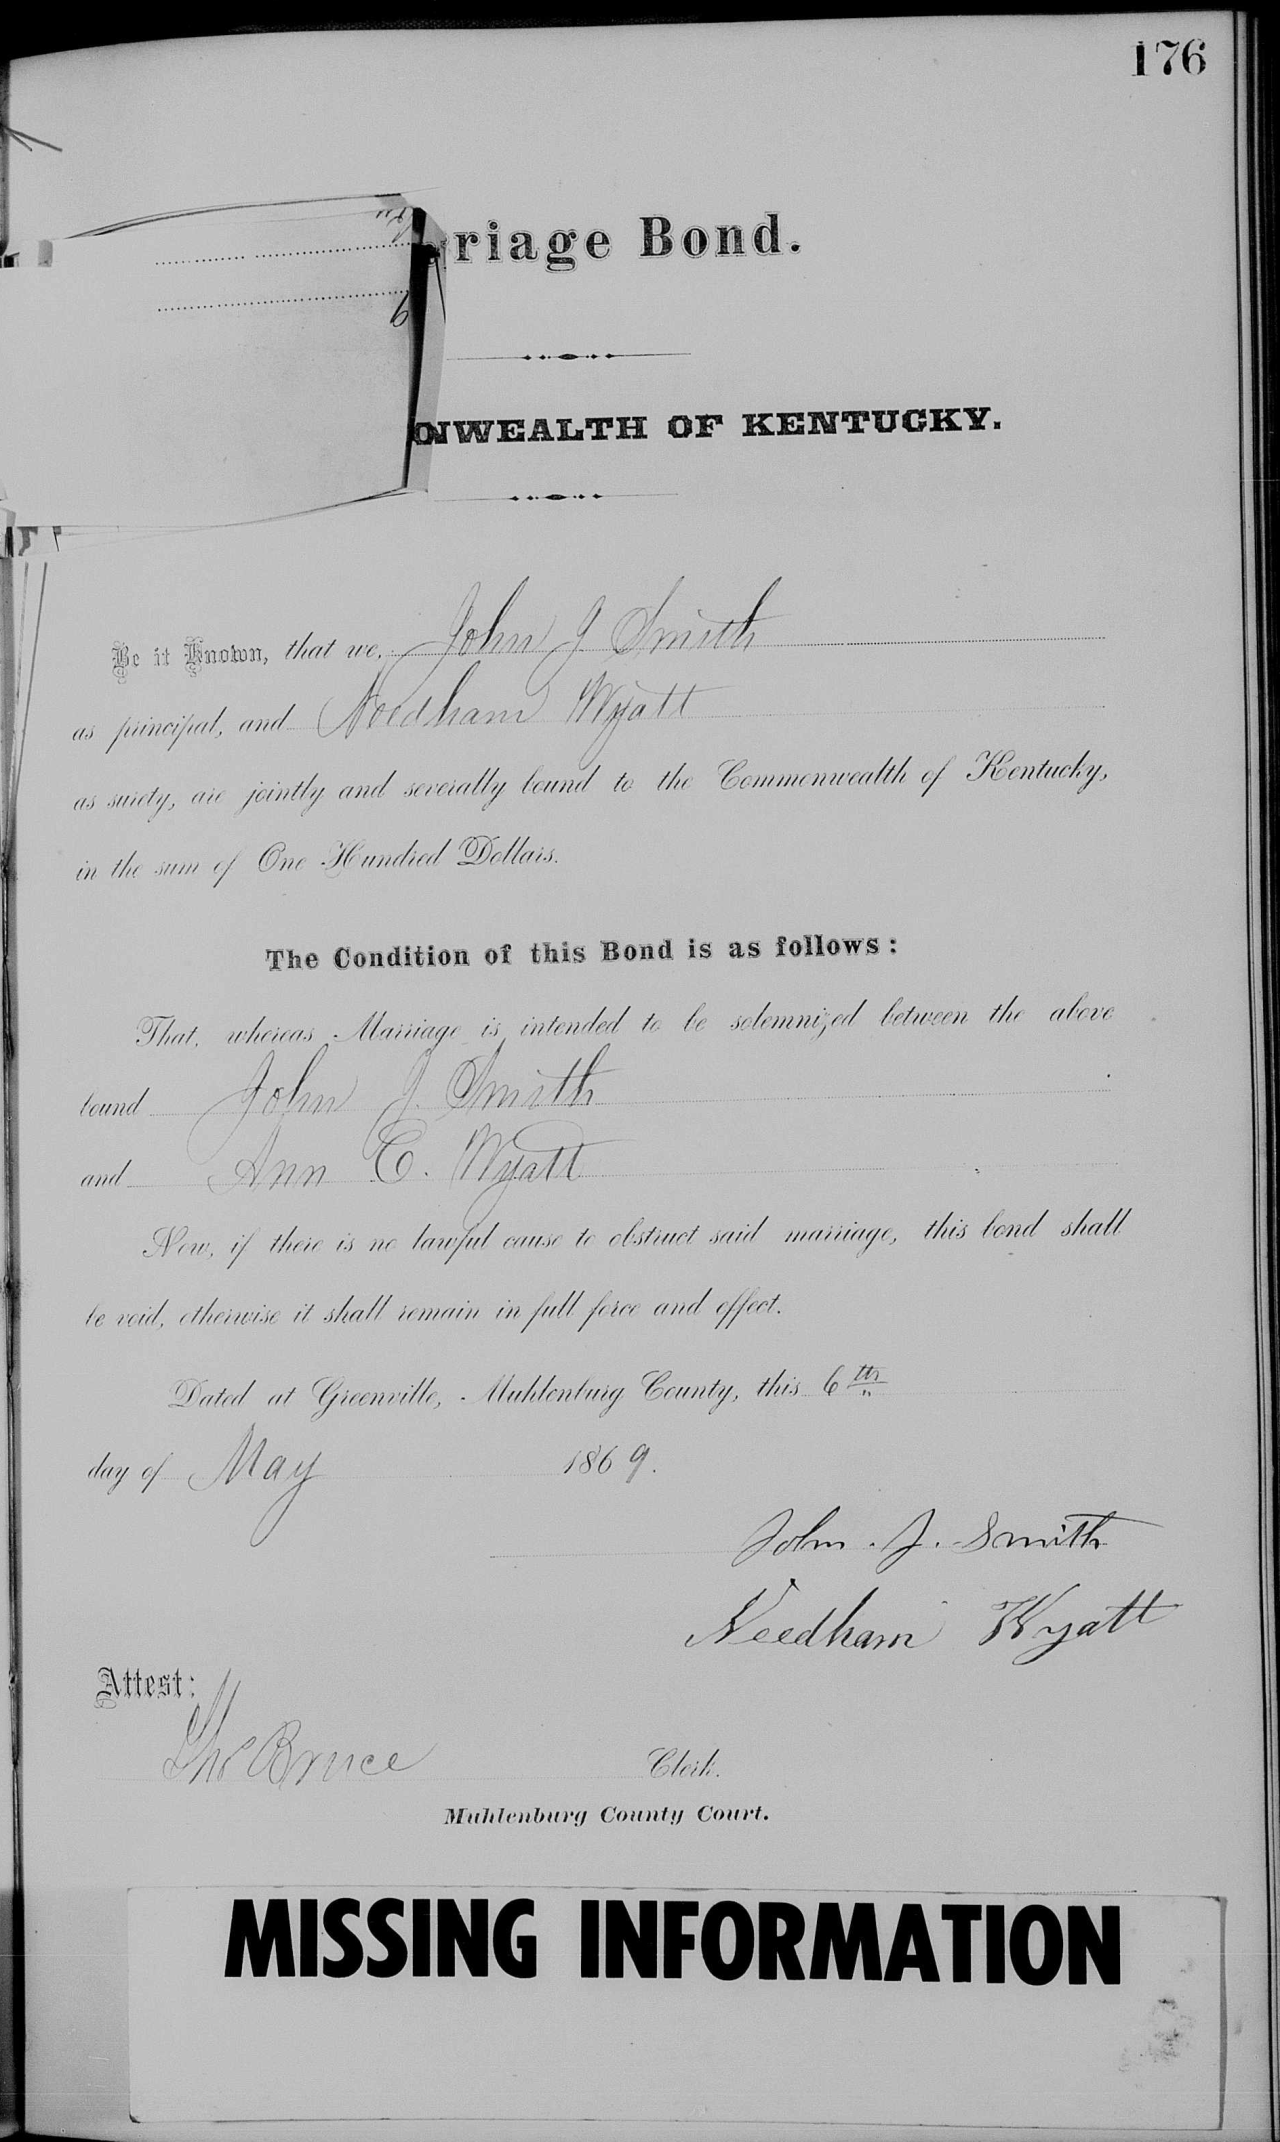 176
riage Bond.
ONWEALTH OF KENTUCKY.
Be it Known, that we, John J Smith
as principal, and Needham Wyatt
as surety, are jointly and severally bound to the Commonwealth of Kentucky,
in the sum of One Hundred Dollars.
The Condition of this Bond is as follows:
That, whereas Marriage is intended to be solemnized between the above
bound John J. Smith
and Ann C. Wyatt
Now, if there is no lawful cause to obstruct said marriage, this bond shall
be void, otherwise it shall remain in full force and effect.
Dated at Greenville, Muhlenburg County, this 6th
day of May 1869.
John. J. Smith
Needham Wyatt
Attest:
Tho Bruce Clerk.
Muhlenburg County Court.
MISSING INFORMATION